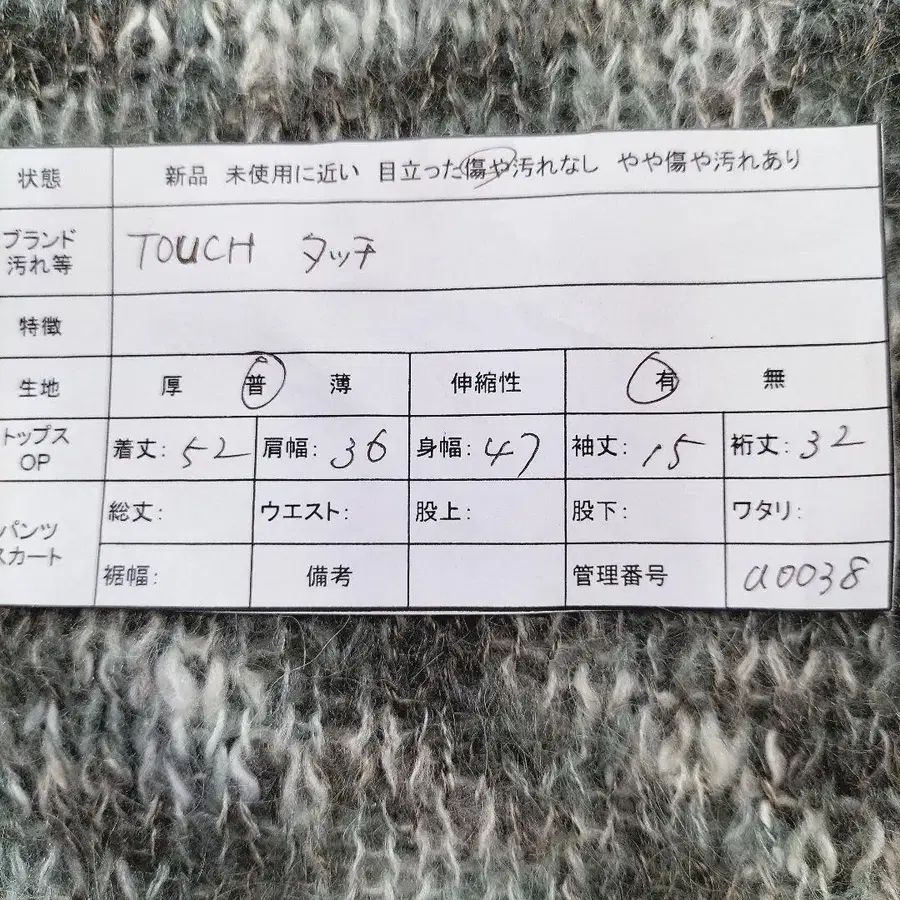 状態 新品 未使用に近い 目立った傷や汚れなし やや傷や汚れあり
ブランド
汚れ等 TOUCH タッチ
特徴
生地 厚 普 薄 伸縮性 有 無
トップス
OP 着丈: 52 肩幅: 36 身幅: 47 袖丈: 15 裄丈: 32
パンツ
スカート 総丈: ウエスト: 股上: 股下: ワタリ:
裾幅: 備考 管理番号 a0038